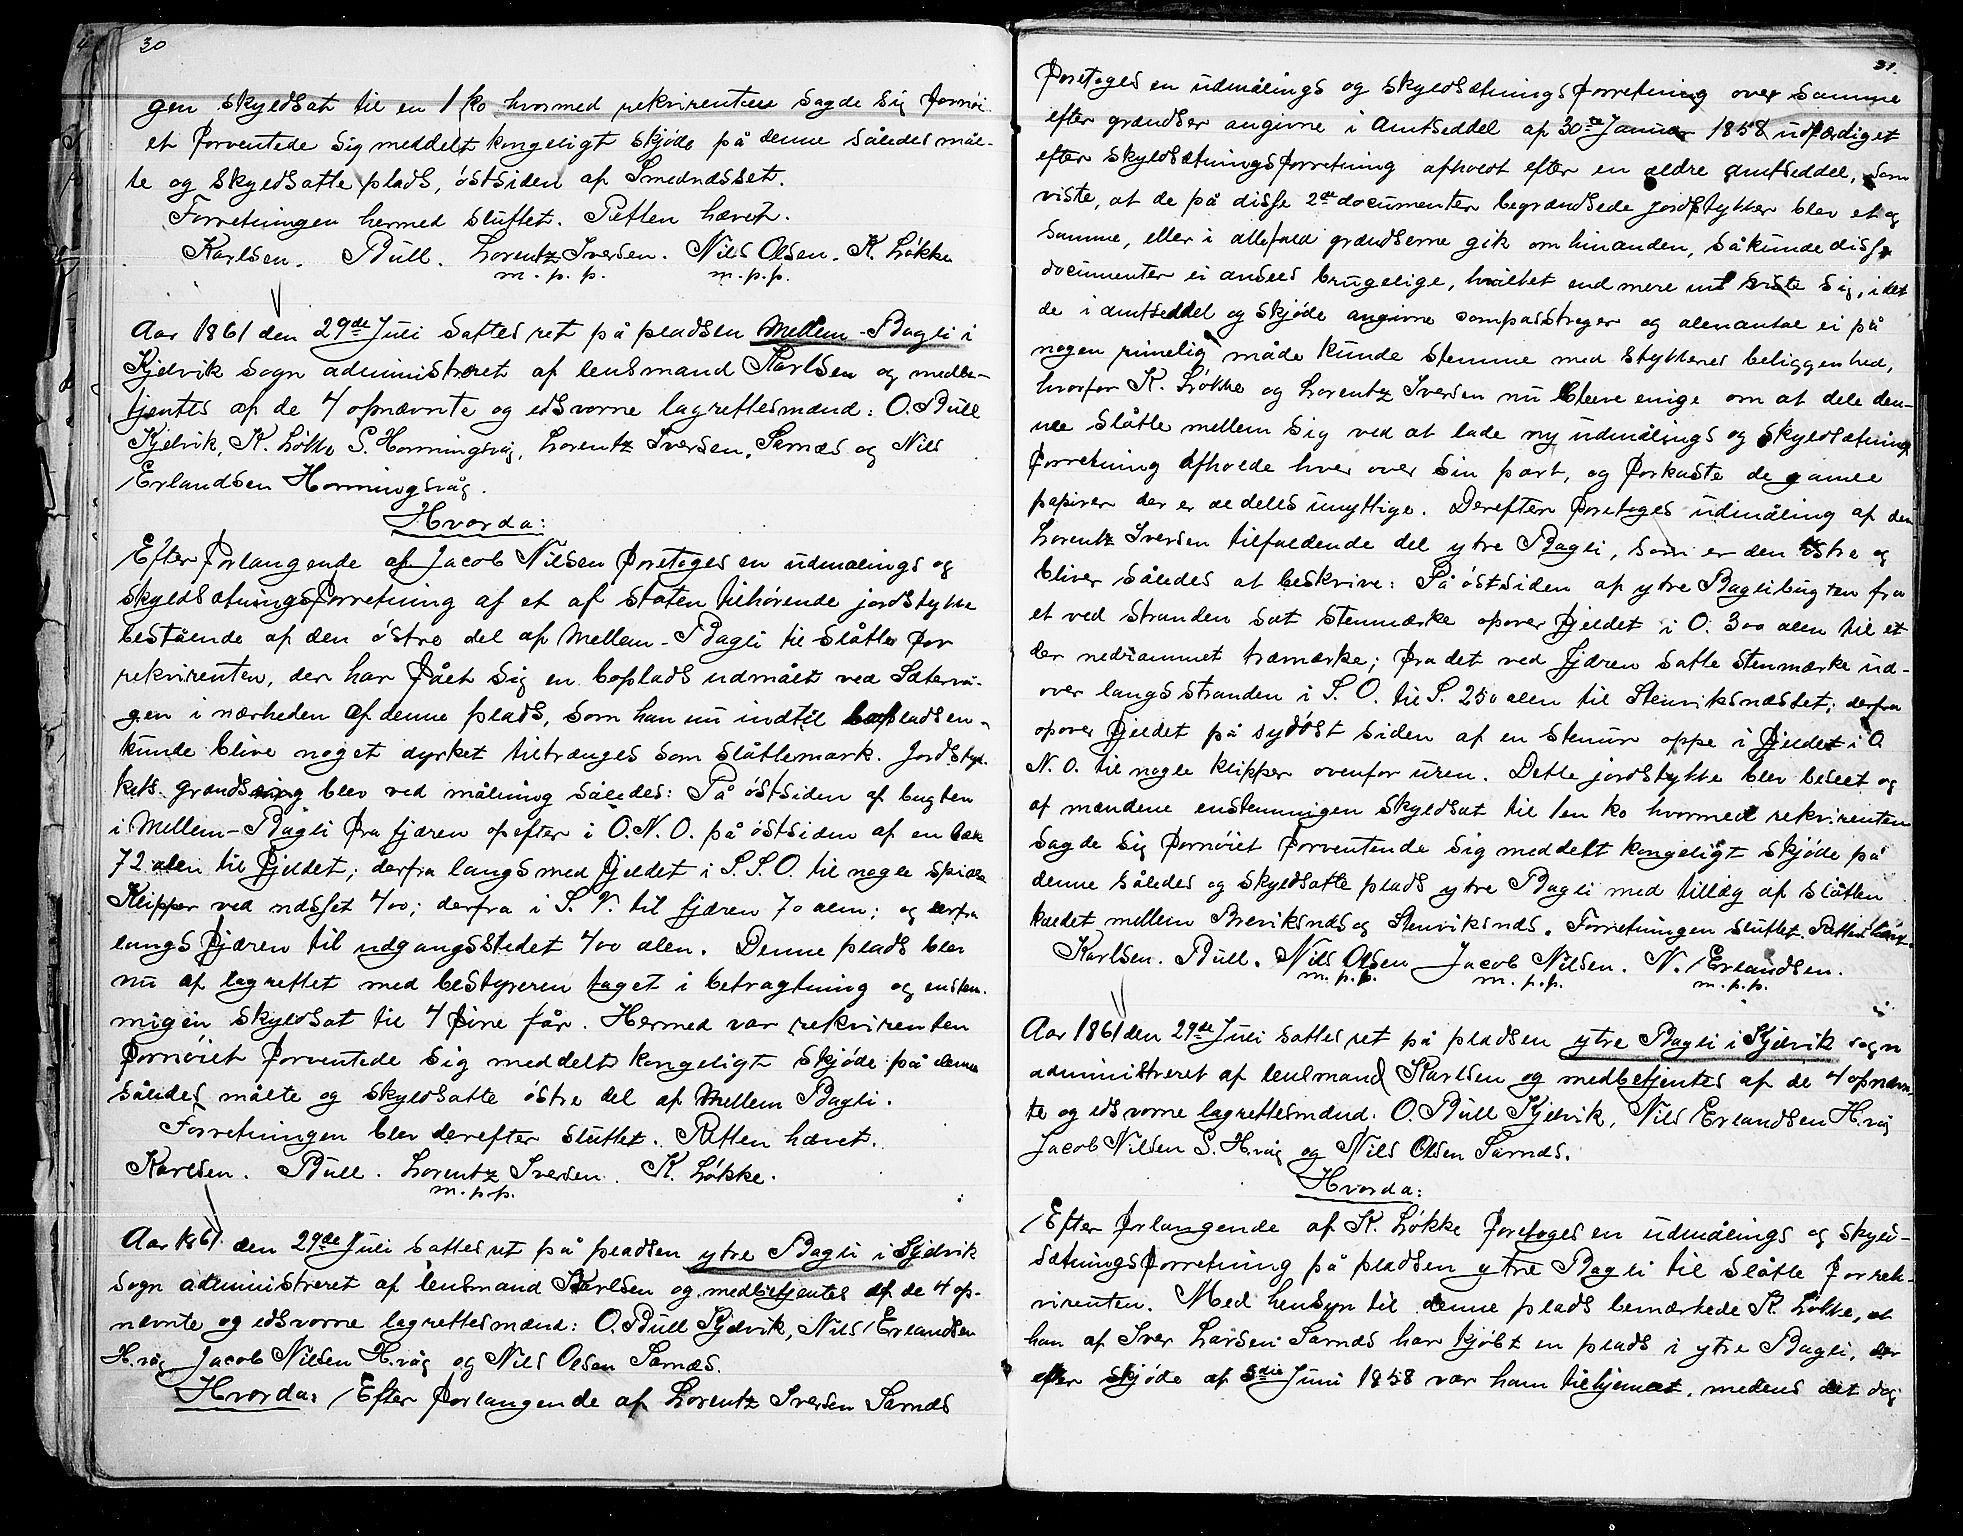 30
gen skyldsat til en 1 ko hvormed rekvirenten sagde sig fornøi-
et forventede sig meddelt kongeligt skjøde på denne således mål-
te og skyldsatte plads, østsiden af Smednæsset.
Forretningen hermed sluttet. Retten hævet.
Karlsen. Bull. Lorentz Iversen. Nils Olsen. K. Løkke
m.p.p. m.p.p.
Aar 1861 den 29de Juli sattes ret på pladsen Mellem-Bagli i
Kjelvik sogn administreret af lensmand Karlsen og medbe-
tjentes af de 4 opnævnte og edsvorne lagrettesmænd: O. Bull
Kjelvik, K. Løkke S. Honningsvåg, Lorentz Iversen, Sarnæs og Nils
Erlandsen Honningsvåg.
Hvorda:
Efter forlangende af Jacob Nilsen foretoges en udmålings og
skyldsætningsforretning af et af staten tilhørende jordstykke
bestående af den østre del af Mellem-Bagli til slåtte for
rekvirenten, der har fået sig en boplads udmålt ved Sætervå-
gen i nærheden af denne plads, som han nu indtil bopladsen
kunde blive noget dyrket tiltrænges som slåttemark. Jordstyk-
kets grændsning blev ved måling således: På østsiden af bugten
i Mellem-Bagli fra fjæren opefter i O.N.O. på østsiden af en bæk
72 alen til fjeldet; derfra langs med fjeldet i S.S.O. til nogle spidse
Klipper ved næsset 400; derfra i S.V. til fjæren 70 alen; og derfra
langs fjæren til udgangsstedet 400 alen. Denne plads blev
nu af lagrettet med bestyreren taget i betragtning og enstem-
migen skyldsat til 4 fire får. Hermed var rekvirenten
fornøiet forventede sig meddelt kongeligt skjøde på denne
således målte og skyldsatte østre del af Mellem Bagli.
Forretningen blev derefter sluttet. Retten hævet.
Karlsen. Bull. Lorentz Iversen. K. Løkke.
m.p.p.
Aar 1861 den 29de Juli sattes ret på pladsen ytre Bagli i Kjelvik
sogn administreret af lensmand Karlsen og medbetjentes af de 4 op-
nævnte og edsvorne lagrettesmænd: O. Bull Kjelvik, Nils Erlandsen
H.våg Jacob Nilsen H.våg og Nils Olsen Sarnæs.
Hvorda: Efter forlangende af Lorentz Iversen Sarnæs
31.
foretoges en udmålings og skyldsætningsforretning over samme
efter grændser angivne i Amtseddel af 30te Januar 1858 udfærdiget
efter skyldsætningsforretning afholdt efter en ældre amtseddel, som
viste, at de på disse 2de documenter begrændsede jordstykker blev et og
samme, eller i allefald grændserne gik om hinanden, så kunde disse
documenter ei ansees brugelige, hvilket end mere viste sig, idet
de i amtseddel og skjøde angivne compasstreger og alenantal ei på
nogen rimelig måde kunde stemme med stykkenes beliggenhed,
hvorfor K. Løkke og Lorentz Iversen nu bleve enige om at dele den-
ne slåtte mellem sig ved at lade ny udmålings og skyldsætnings
forretning afholde hver over sin part, og forkaste de gamle
papirer der er aldeles unyttige. Derefter foretoges udmåling af den
Lorentz Iversen tilfaldende del ytre Bagli, som er den østre og
bliver således at beskrive: På østsiden af ytre Baglibugten fra
et ved stranden sat stenmærke opover fjeldet i O. 300 alen til et
der nedrammet træmærke; fra det ved fjæren satte stenmærke ud-
over langs stranden i S.O. til S. 250 alen til Stenviksnæstet; derfra
opover fjeldet på sydøst siden af en stenur oppe i fjeldet i O
N.O. til nogle klipper ovenfor uren. Dette jordstykke blev beseet og
af mændene enstemmigen skyldsat til 1 en ko hvormed rekvirenten
sagde sig fornøiet forventende sig meddelt kongeligt skjøde på
denne således og skyldsatte plads ytre Bagli med tillæg af slåtten
kaldet mellem Breviksnæs og Stenviksnæs. Forretningen sluttet. Retten hævet.
Karlsen. Bull. Nils Olsen Jacob Nilsen. N. Erlandsen.
m.p.p. m.p.p. m.p.p.
Aar 1861 den 29de Juli sattes ret på pladsen ytre Bagli i Kjelvik sogn
administreret af lensmand Karlsen og medbetjentes af de 4 opnævn-
te og edsvorne lagrettesmænd: O. Bull Kjelvik, Nils Erlandsen H.våg
Jacob Nilsen S. H.våg og Nils Olsen Sarnæs.
Hvorda:
Efter forlangende af K. Løkke foretoges en udmålings og skyld-
sætningsforretning på pladsen ytre Bagli til slåtte for rek-
virenten. Med hensyn til denne plads bemærkede K. Løkke, at
han af Iver Larsen Sarnæs har kjøbt en plads i ytre Bagli, der
efter skjøde af 5die Juni 1858 var ham tilhjemlet, medens det dog